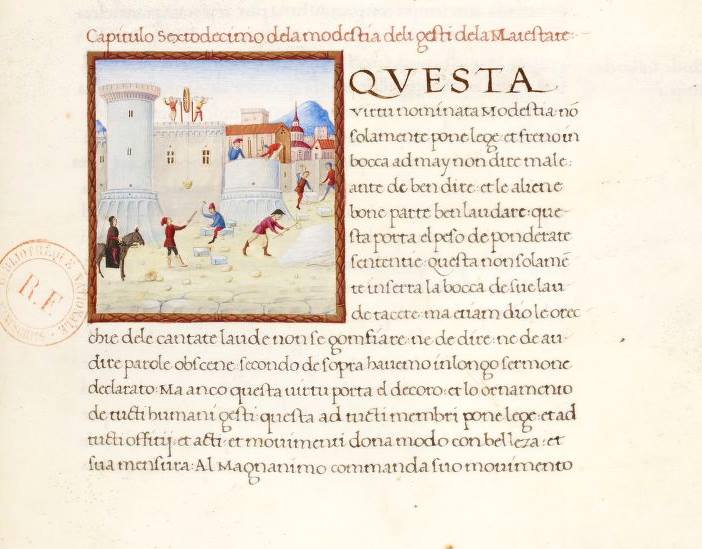 Capitulo Sextodecimo dela modestia deli gesti dela Maiestate:
QVESTA
virtu nominata Modestia: nõ
solamente pone lege: et freno in
bocca ad may non dire male:
ante de ben dire: et le aliene
bone parte ben laudare: que-
sta porta el peso de ponderate
sententie: Questa non solamẽ
te inserra la bocca de sue lau
de tacere: ma etiam dio le orec
chie dele cantate laude non se gomfiare: ne de dire: ne de au-
dire parole obscene: secondo de sopra havemo in longo sermone
declarato: Ma anco questa virtu porta el decoro: et lo ornamento
de tucti humani gesti: questa ad tucti membri pone lege: et ad
tucti offitij: et acti: et movimenti dona modo con belleza: et
sua mensura: Al Magnanimo commanda suo movimento
BIBLIOTHEQUE NATIONALE
R.F